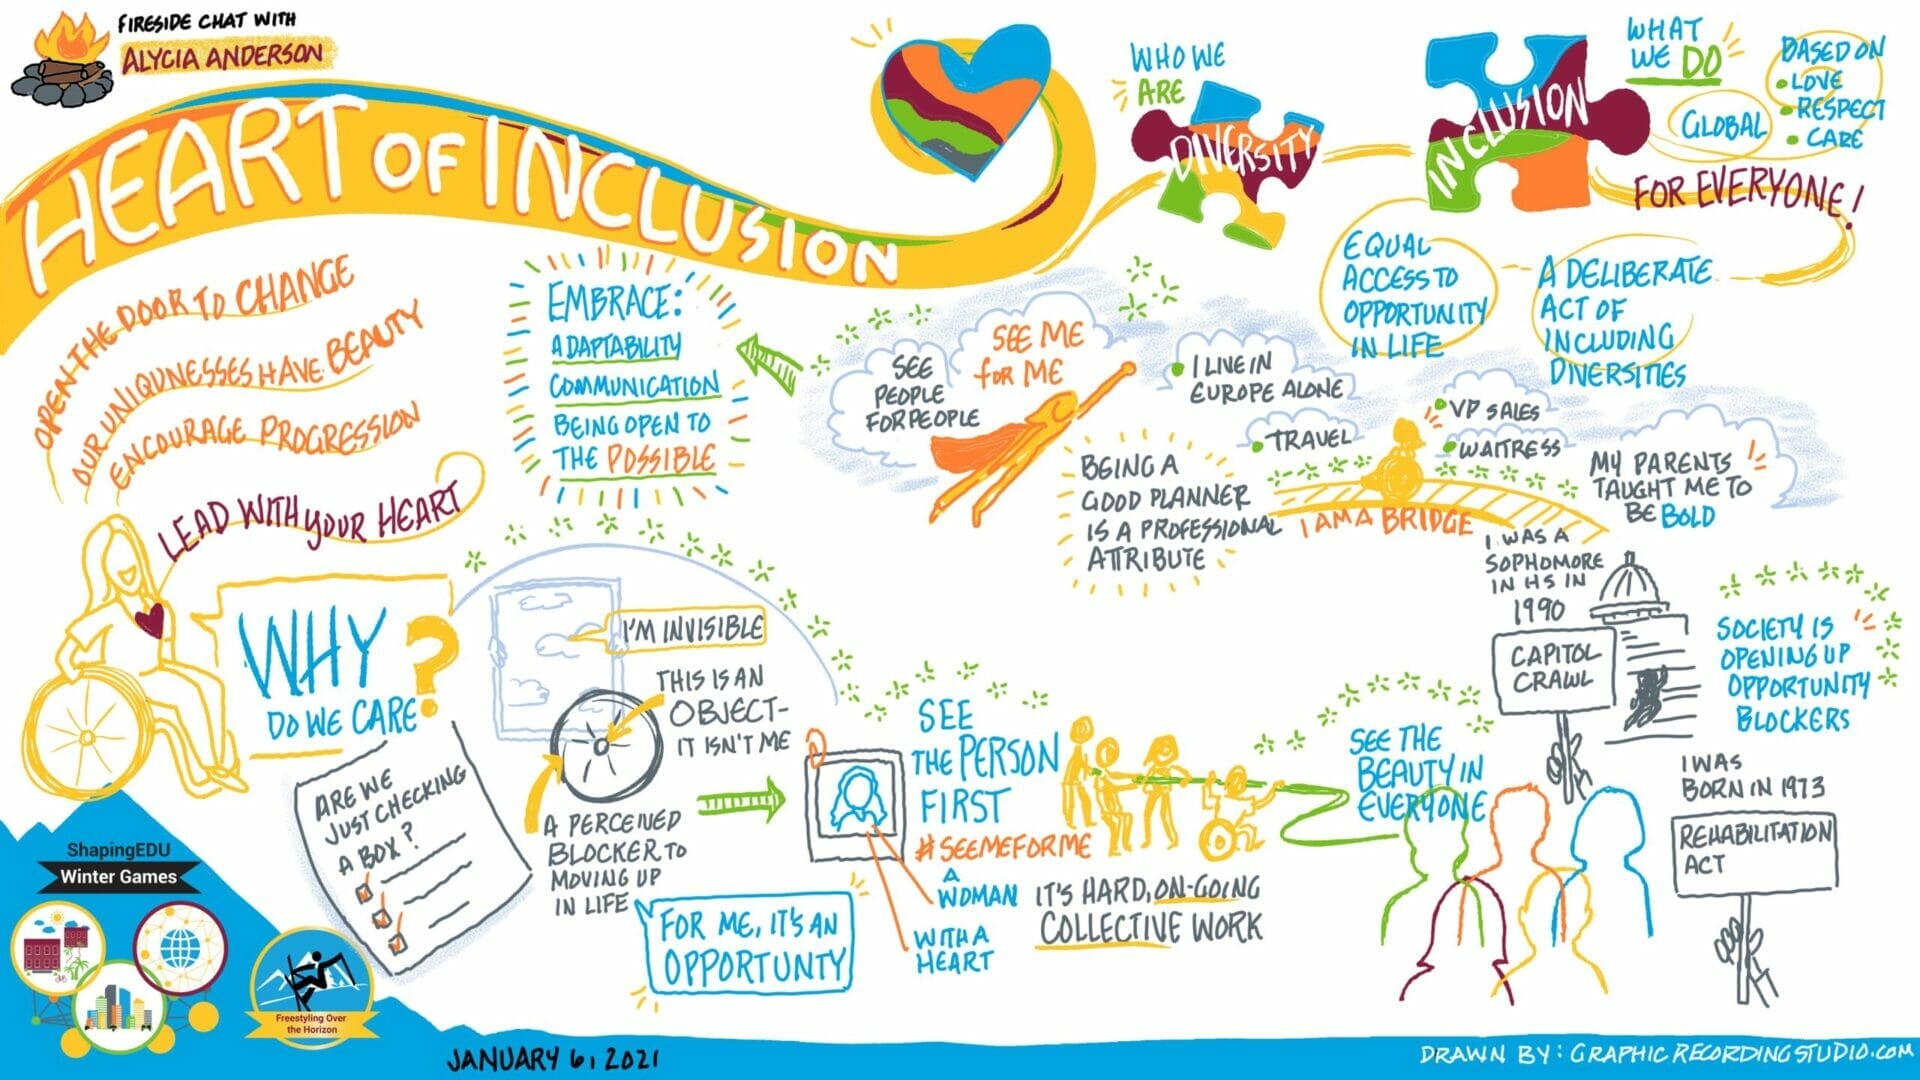 FIRESIDE CHAT WITH
ALYCIA ANDERSON
HEART OF INCLUSION
WHO WE
ARE
DIVERSITY
INCLUSION
WHAT
WE DO
GLOBAL
BASED ON
• LOVE
• RESPECT
• CARE
FOR EVERYONE!
EQUAL
ACCESS TO
OPPORTUNITY
IN LIFE
A DELIBERATE
ACT OF
INCLUDING
DIVERSITIES
OPEN THE DOOR TO CHANGE
OUR UNIQUNESSES HAVE BEAUTY
ENCOURAGE PROGRESSION
LEAD WITH YOUR HEART
EMBRACE:
ADAPTABILITY
COMMUNICATION
BEING OPEN TO
THE POSSIBLE
SEE
PEOPLE
FOR PEOPLE
SEE ME
for ME
• I LIVE IN
EUROPE ALONE
• TRAVEL
• VP SALES
• WAITRESS
MY PARENTS
TAUGHT ME TO
BE BOLD
BEING A
GOOD PLANNER
IS A PROFESSIONAL
ATTRIBUTE
I AM A BRIDGE
I WAS A
SOPHOMORE
IN HS IN
1990
CAPITOL
CRAWL
SOCIETY IS
OPENING UP
OPPORTUNITY
BLOCKERS
I WAS
BORN IN 1973
REHABILITATION
ACT
WHY
DO WE CARE?
ARE WE
JUST CHECKING
A BOX?
I'M INVISIBLE
THIS IS AN
OBJECT-
IT ISN'T ME
A PERCEIVED
BLOCKER TO
MOVING UP
IN LIFE
FOR ME, IT'S AN
OPPORTUNTY
SEE
THE PERSON
FIRST
#SEEMEFORME
A
WOMAN
WITH A
HEART
IT'S HARD, ON-GOING
COLLECTIVE WORK
SEE THE
BEAUTY IN
EVERYONE
ShapingEDU
Winter Games
Freestyling Over
the Horizon
JANUARY 6, 2021
DRAWN BY: GRAPHICRECORDINGSTUDIO.COM